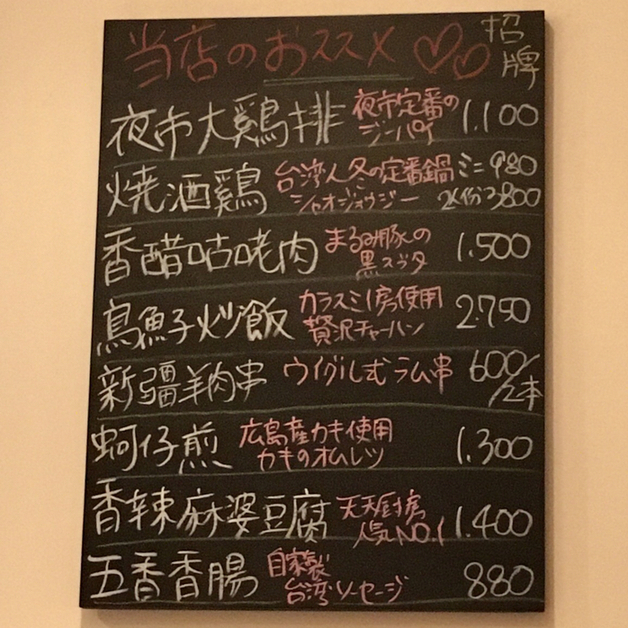 当店のおススメ♡♡ 招牌
夜市大鶏排 夜市定番のジーパイ 1.100
焼酒鶏 台湾人冬の定番鍋 シャオジョウジー ミニ980 2人份 3,800
香醋咕咾肉 豚の黒スブタ 1.500
烏魚子炒飯 カラスミ1房使用 贅沢チャーハン 2.750
新疆羊肉串 ウイグル ラム串 600/2本
蚵仔煎 広島産カキ使用 カキのオムレツ 1.300
香辣麻婆豆腐 天天厨房 人気NO.1 1.400
五香香腸 自家製 台湾ソーセージ 880